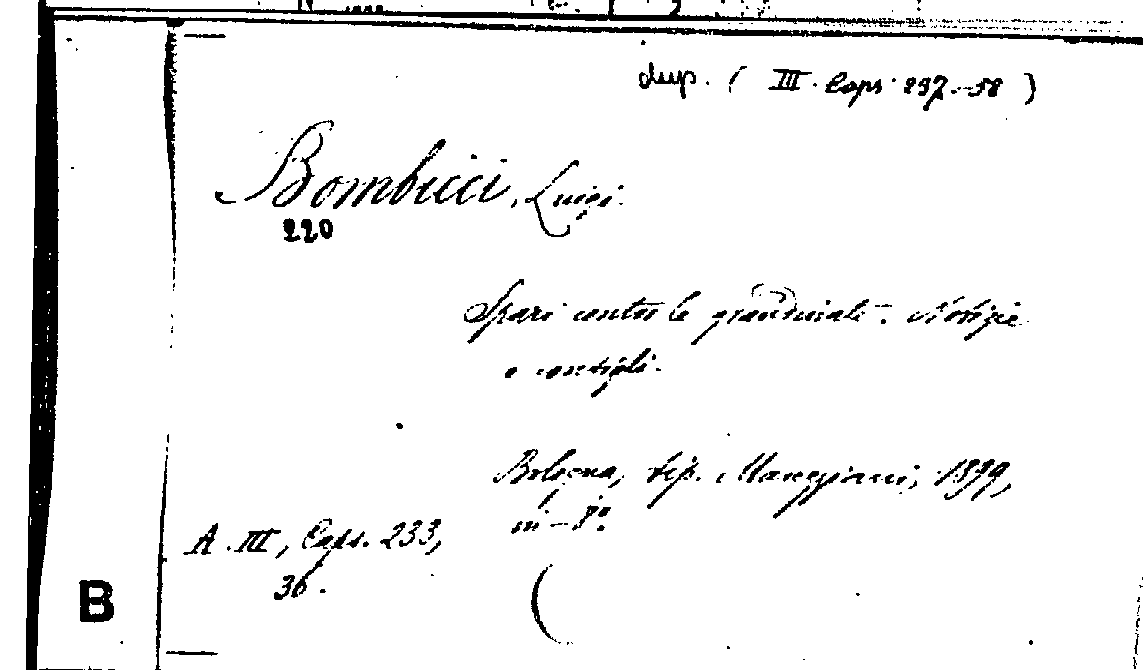 dup. ( III. Caps 237.-58 )
Bombicci, Luigi.
220
Spari contro le grandinate. Notizie
e consigli.
Bologna, tip. Mareggiani, 1899,
in-8º.
A. III, Caps. 233,
36.
B